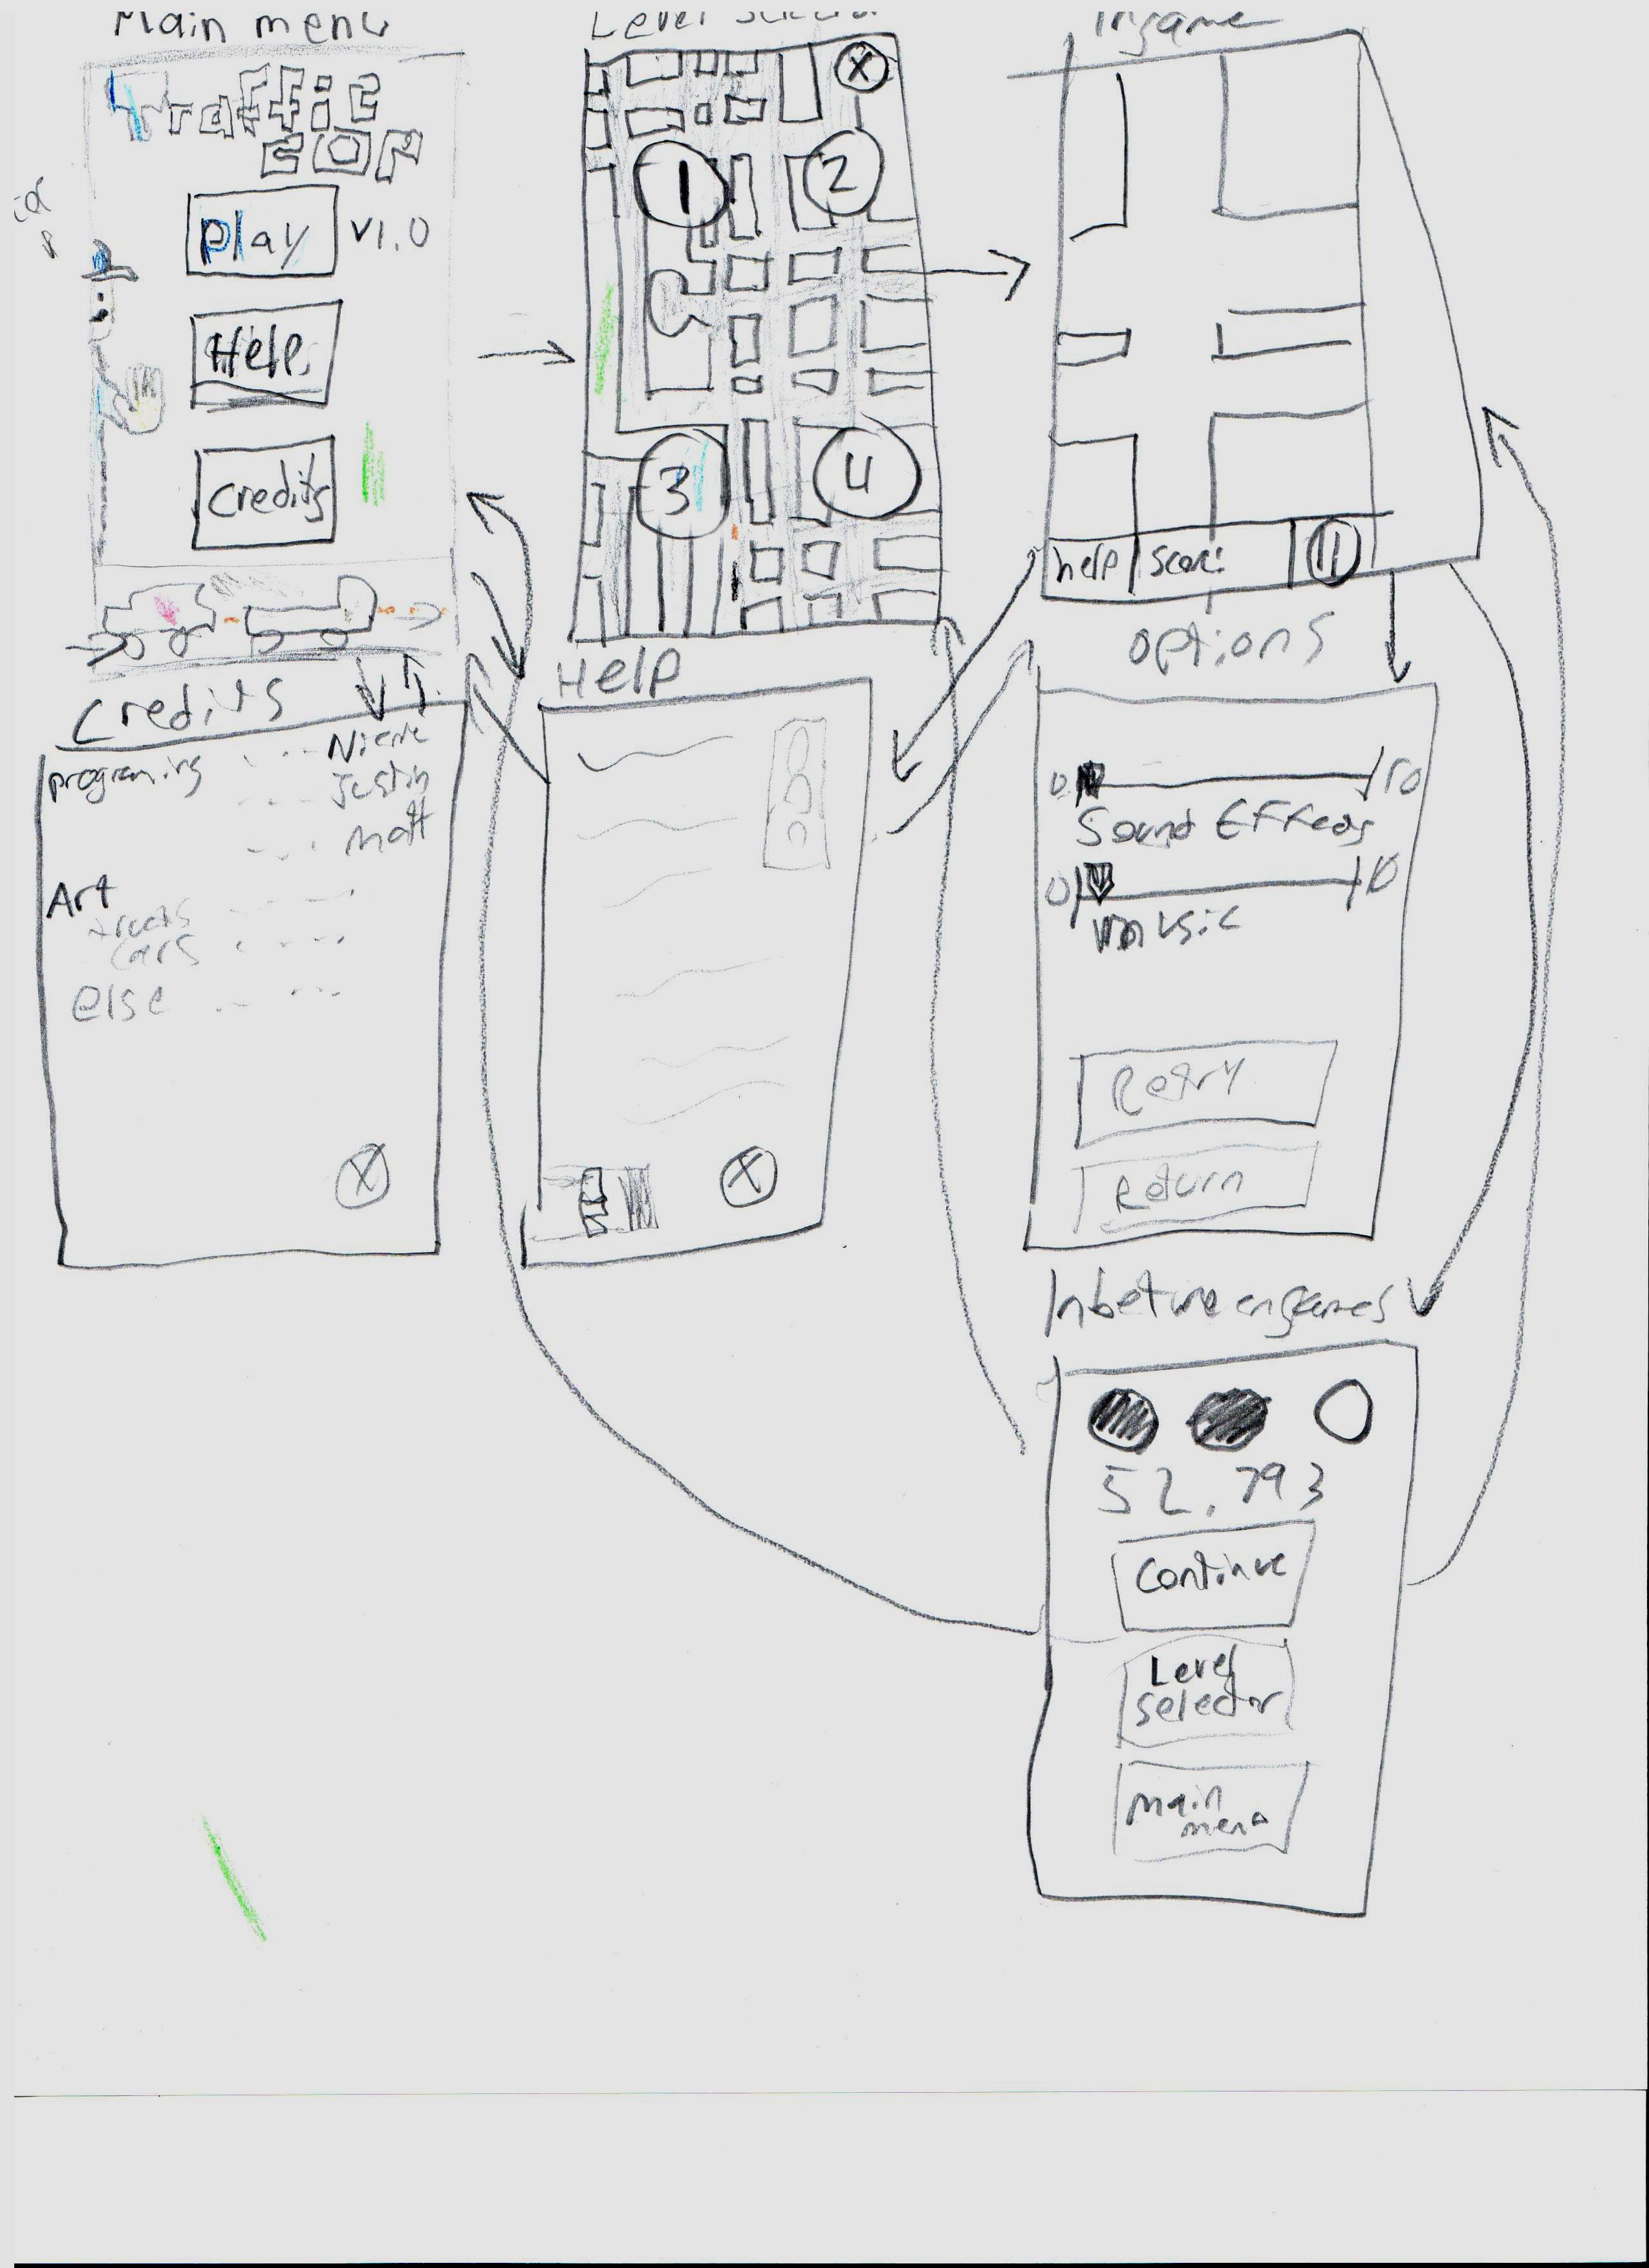 Main menu
Traffic
COP
Play
v1.0
Help
Credits
Level
X
1
2
3
4
Ingame
help
Score:
Credits
programing
Justin
matt
Art
trucks
cars
else
X
Help
X
options
0
10
Sound Effects
0
10
Music
Retry
Return
Inbetweengames
52.793
Continue
Level
Selector
Main
menu